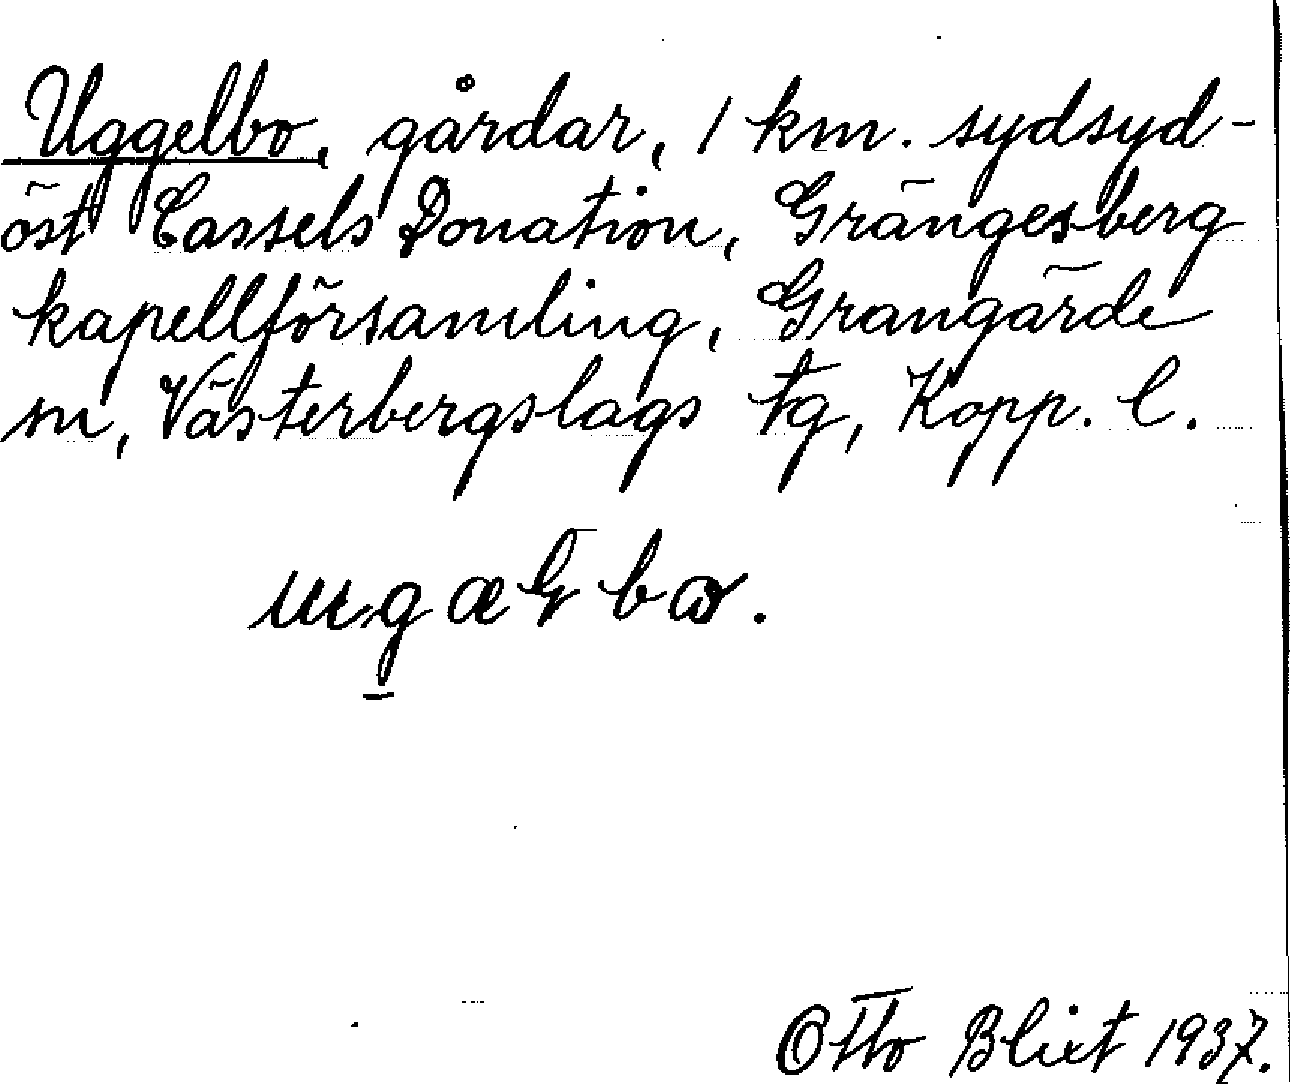 Uggelbo, gårdar, 1 km. sydsyd-
öst Cassels Donation, Grängesberg
kapellförsamling, Grangärde
sn, Västerbergslags tg, Kopp. l.
Otto Blixt 1937.